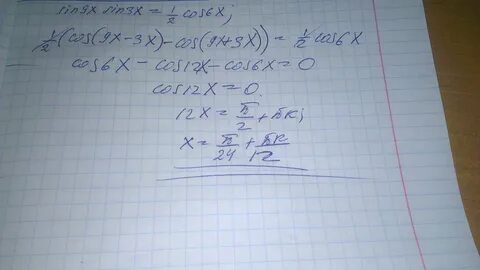 sin9x sin3x = 1/2 cos6x;
1/2(cos(9x-3x)-cos(9x+3x)) = 1/2 cos6x
cos6x - cos12x - cos6x = 0
cos12x = 0.
12x = π/2 + πk;
x = π/24 + πk/12